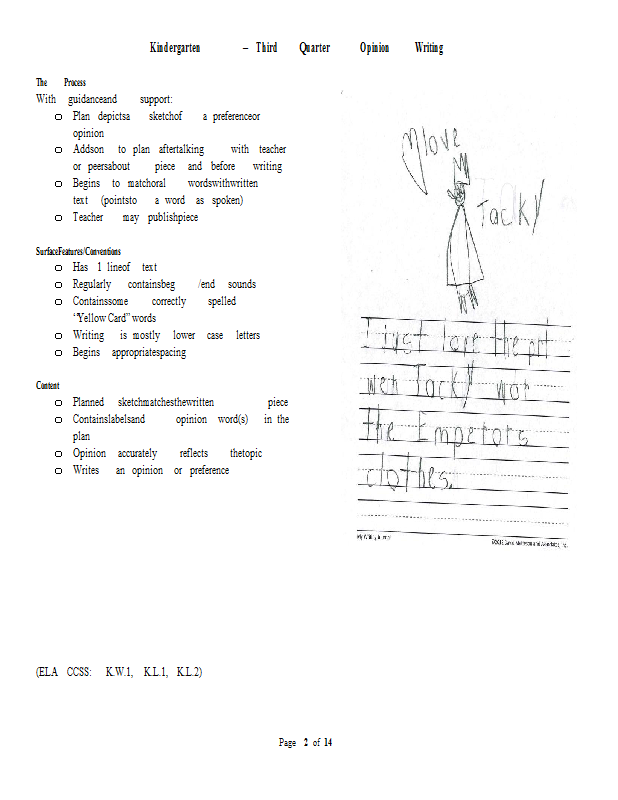 Kindergarten – Third Quarter Opinion Writing
The Process
With guidanceand support:
o Plan depictsa sketchof a preferenceor
opinion
o Addson to plan aftertalking with teacher
or peersabout piece and before writing
o Begins to matchoral wordswithwritten
text (pointsto a word as spoken)
o Teacher may publishpiece
SurfaceFeatures/Conventions
o Has 1 lineof text
o Regularly containsbeg /end sounds
o Containssome correctly spelled
“Yellow Card” words
o Writing is mostly lower case letters
o Begins appropriatespacing
Content
o Planned sketchmatchesthewritten piece
o Containslabelsand opinion word(s) in the
plan
o Opinion accurately reflects thetopic
o Writes an opinion or preference
(ELA CCSS: K.W.1, K.L.1, K.L.2)
love
Tacky
I just love the prt
wen Tacky wor
the Emperors
clothes.
My Writing Journal
Page 2 of 14